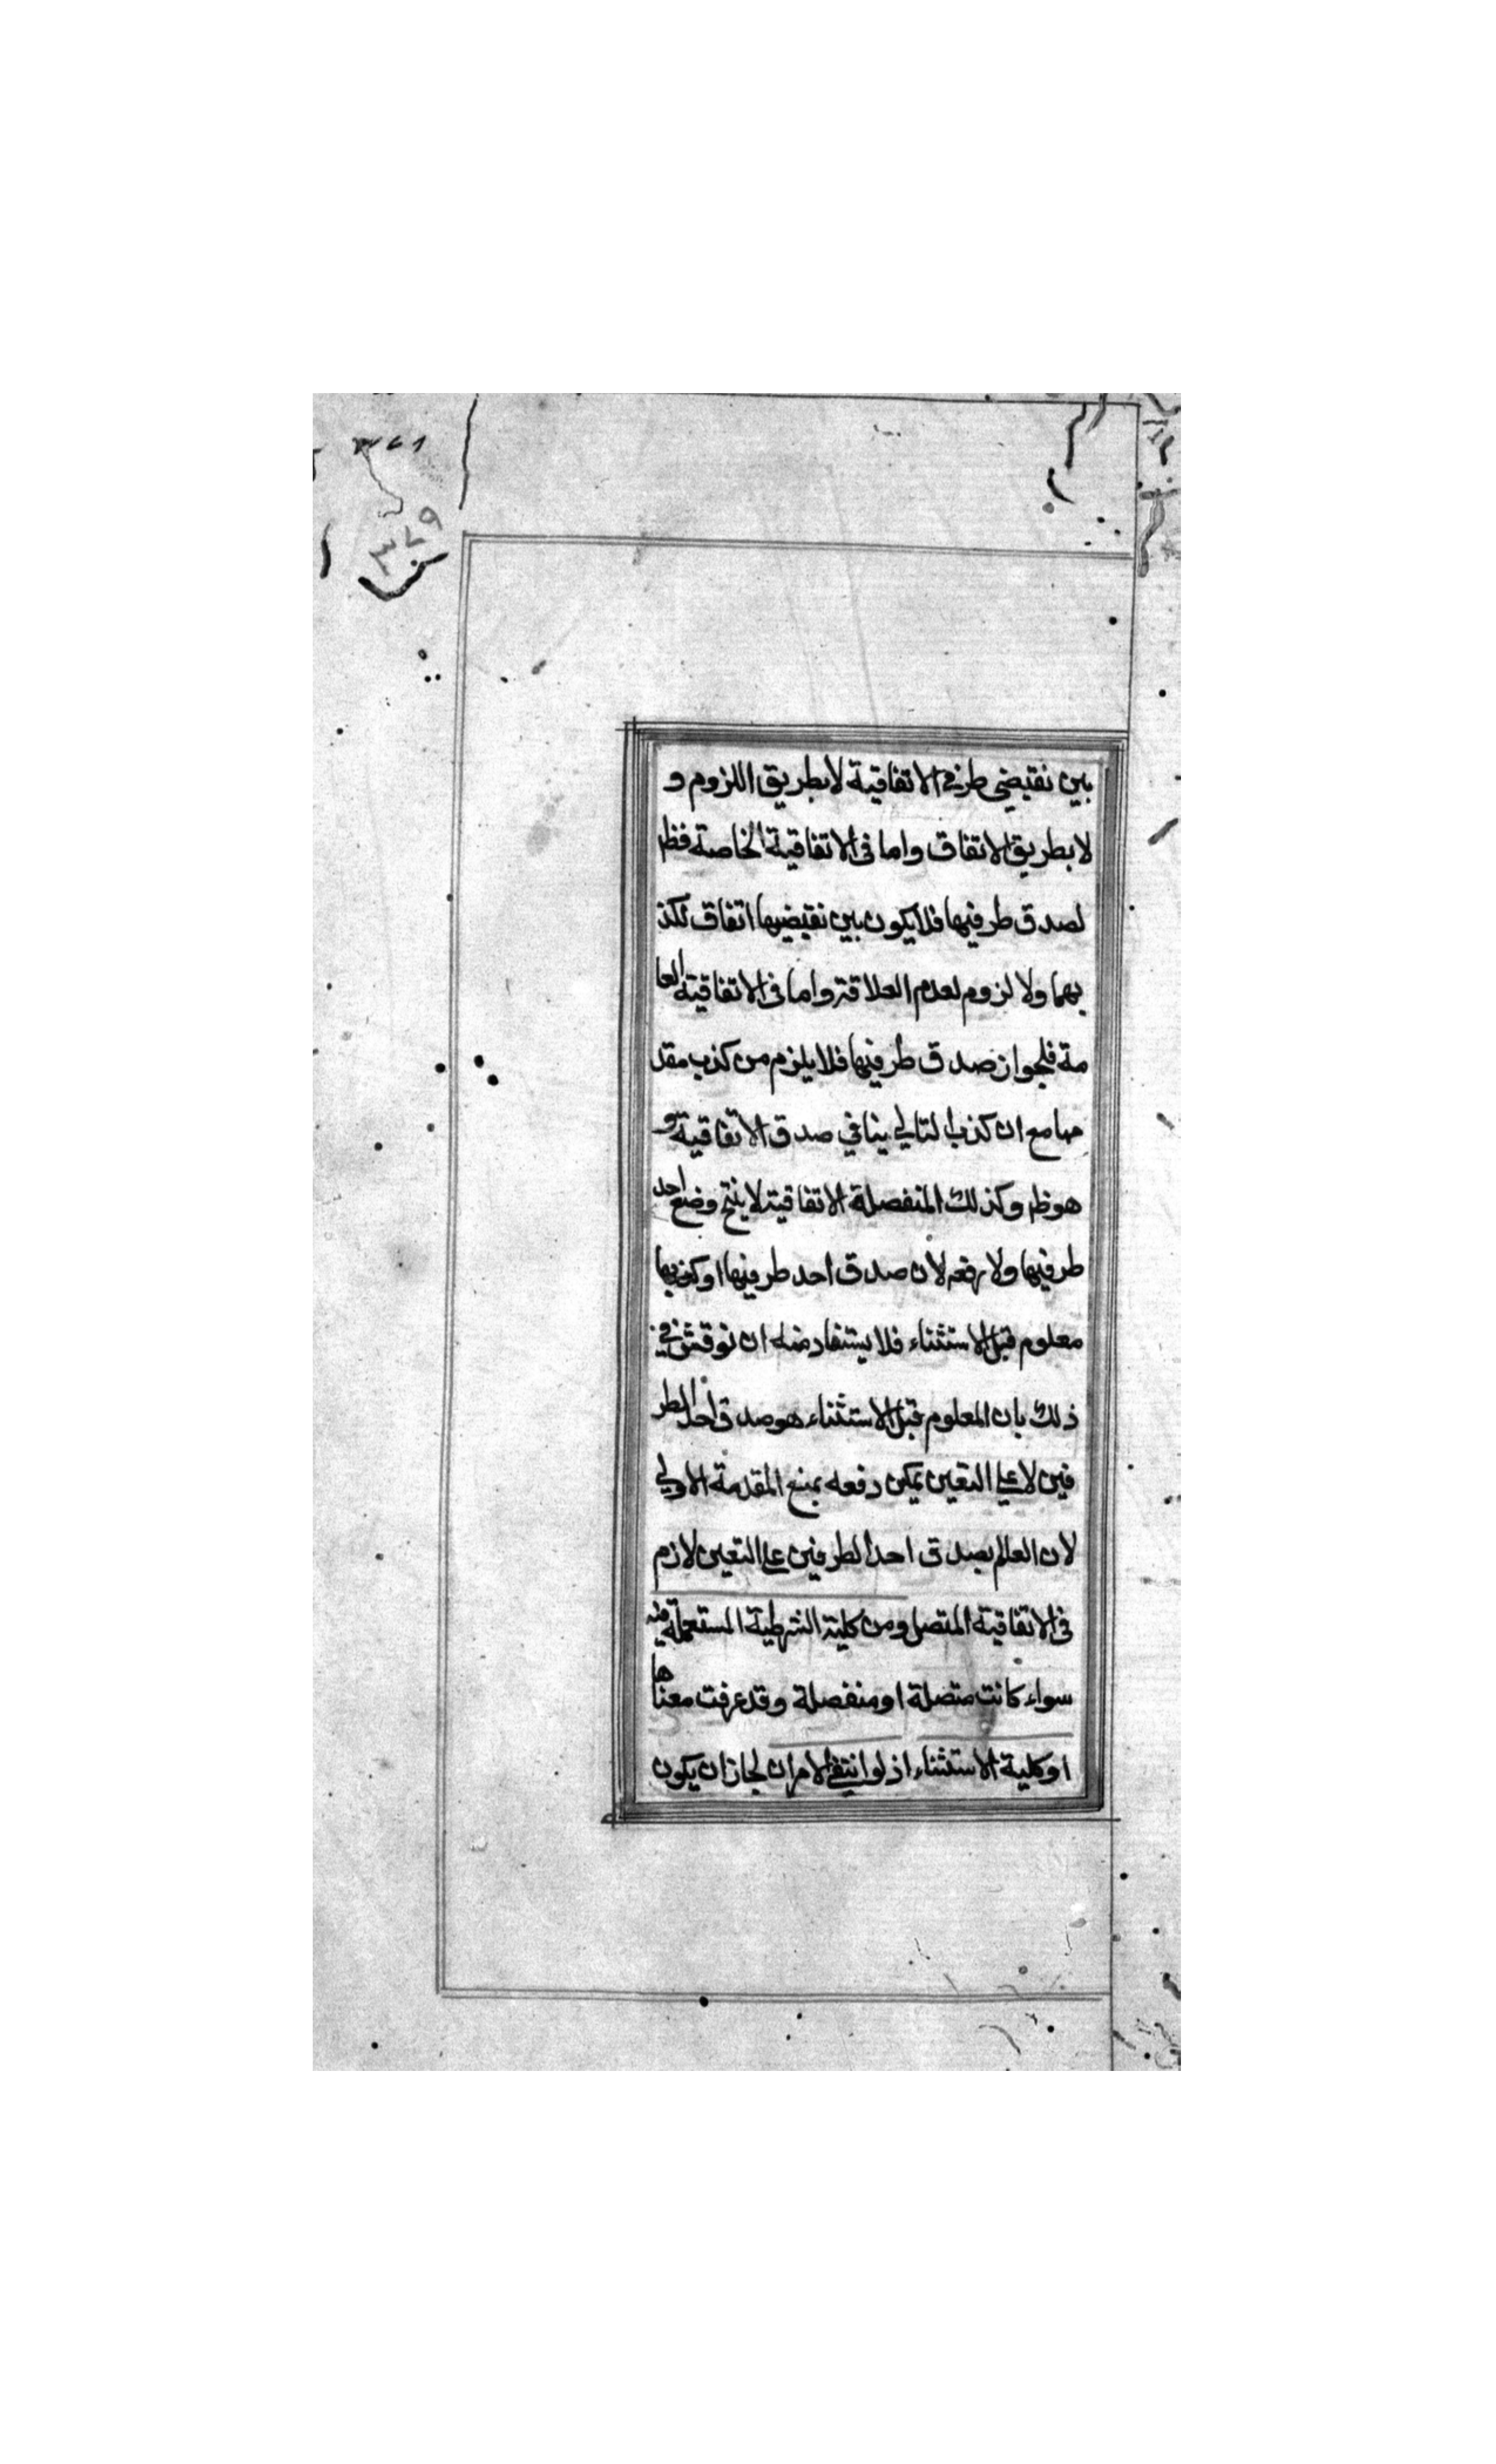 ٣٧١
٣٧٩
بين نقيضي طرفي الاتفاقية لا بطريق اللزوم و
لا بطريق الاتفاق واما في الاتفاقية الخاصة فظ
لصدق طرفيها فلا يكون بين نقيضيها اتفاق لكذ
بهما ولا لزوم لعدم العلاقة واما في الاتفاقية العا
مة فلجواز صدق طرفيها فلا يلزم من كذب مقد
مها مع ان كذب التالي ينافي صدق الاتفاقية و
هو ظ وكذلك المنفصلة الاتفاقية لا ينتج وضع احد
طرفيها ولا رفعه لان صدق احد طرفيها او كذبها
معلوم قبل الاستثناء فلا يستفاد منه ان نوقش في
ذلك بان المعلوم قبل الاستثناء هو صدق احد الطر
فين لا على التعين يمكن دفعه بمنع المقدمة الاولي
لان العالم بصدق احد الطرفين على التعين لازم
في الاتفاقية المتصل ومن كلية الشرطية المستعملة فيه
سواء كانت متصلة او منفصلة وقد عرفت معناها
او كلية الاستثناء اذ لو انتفي الامران لجاز ان يكون